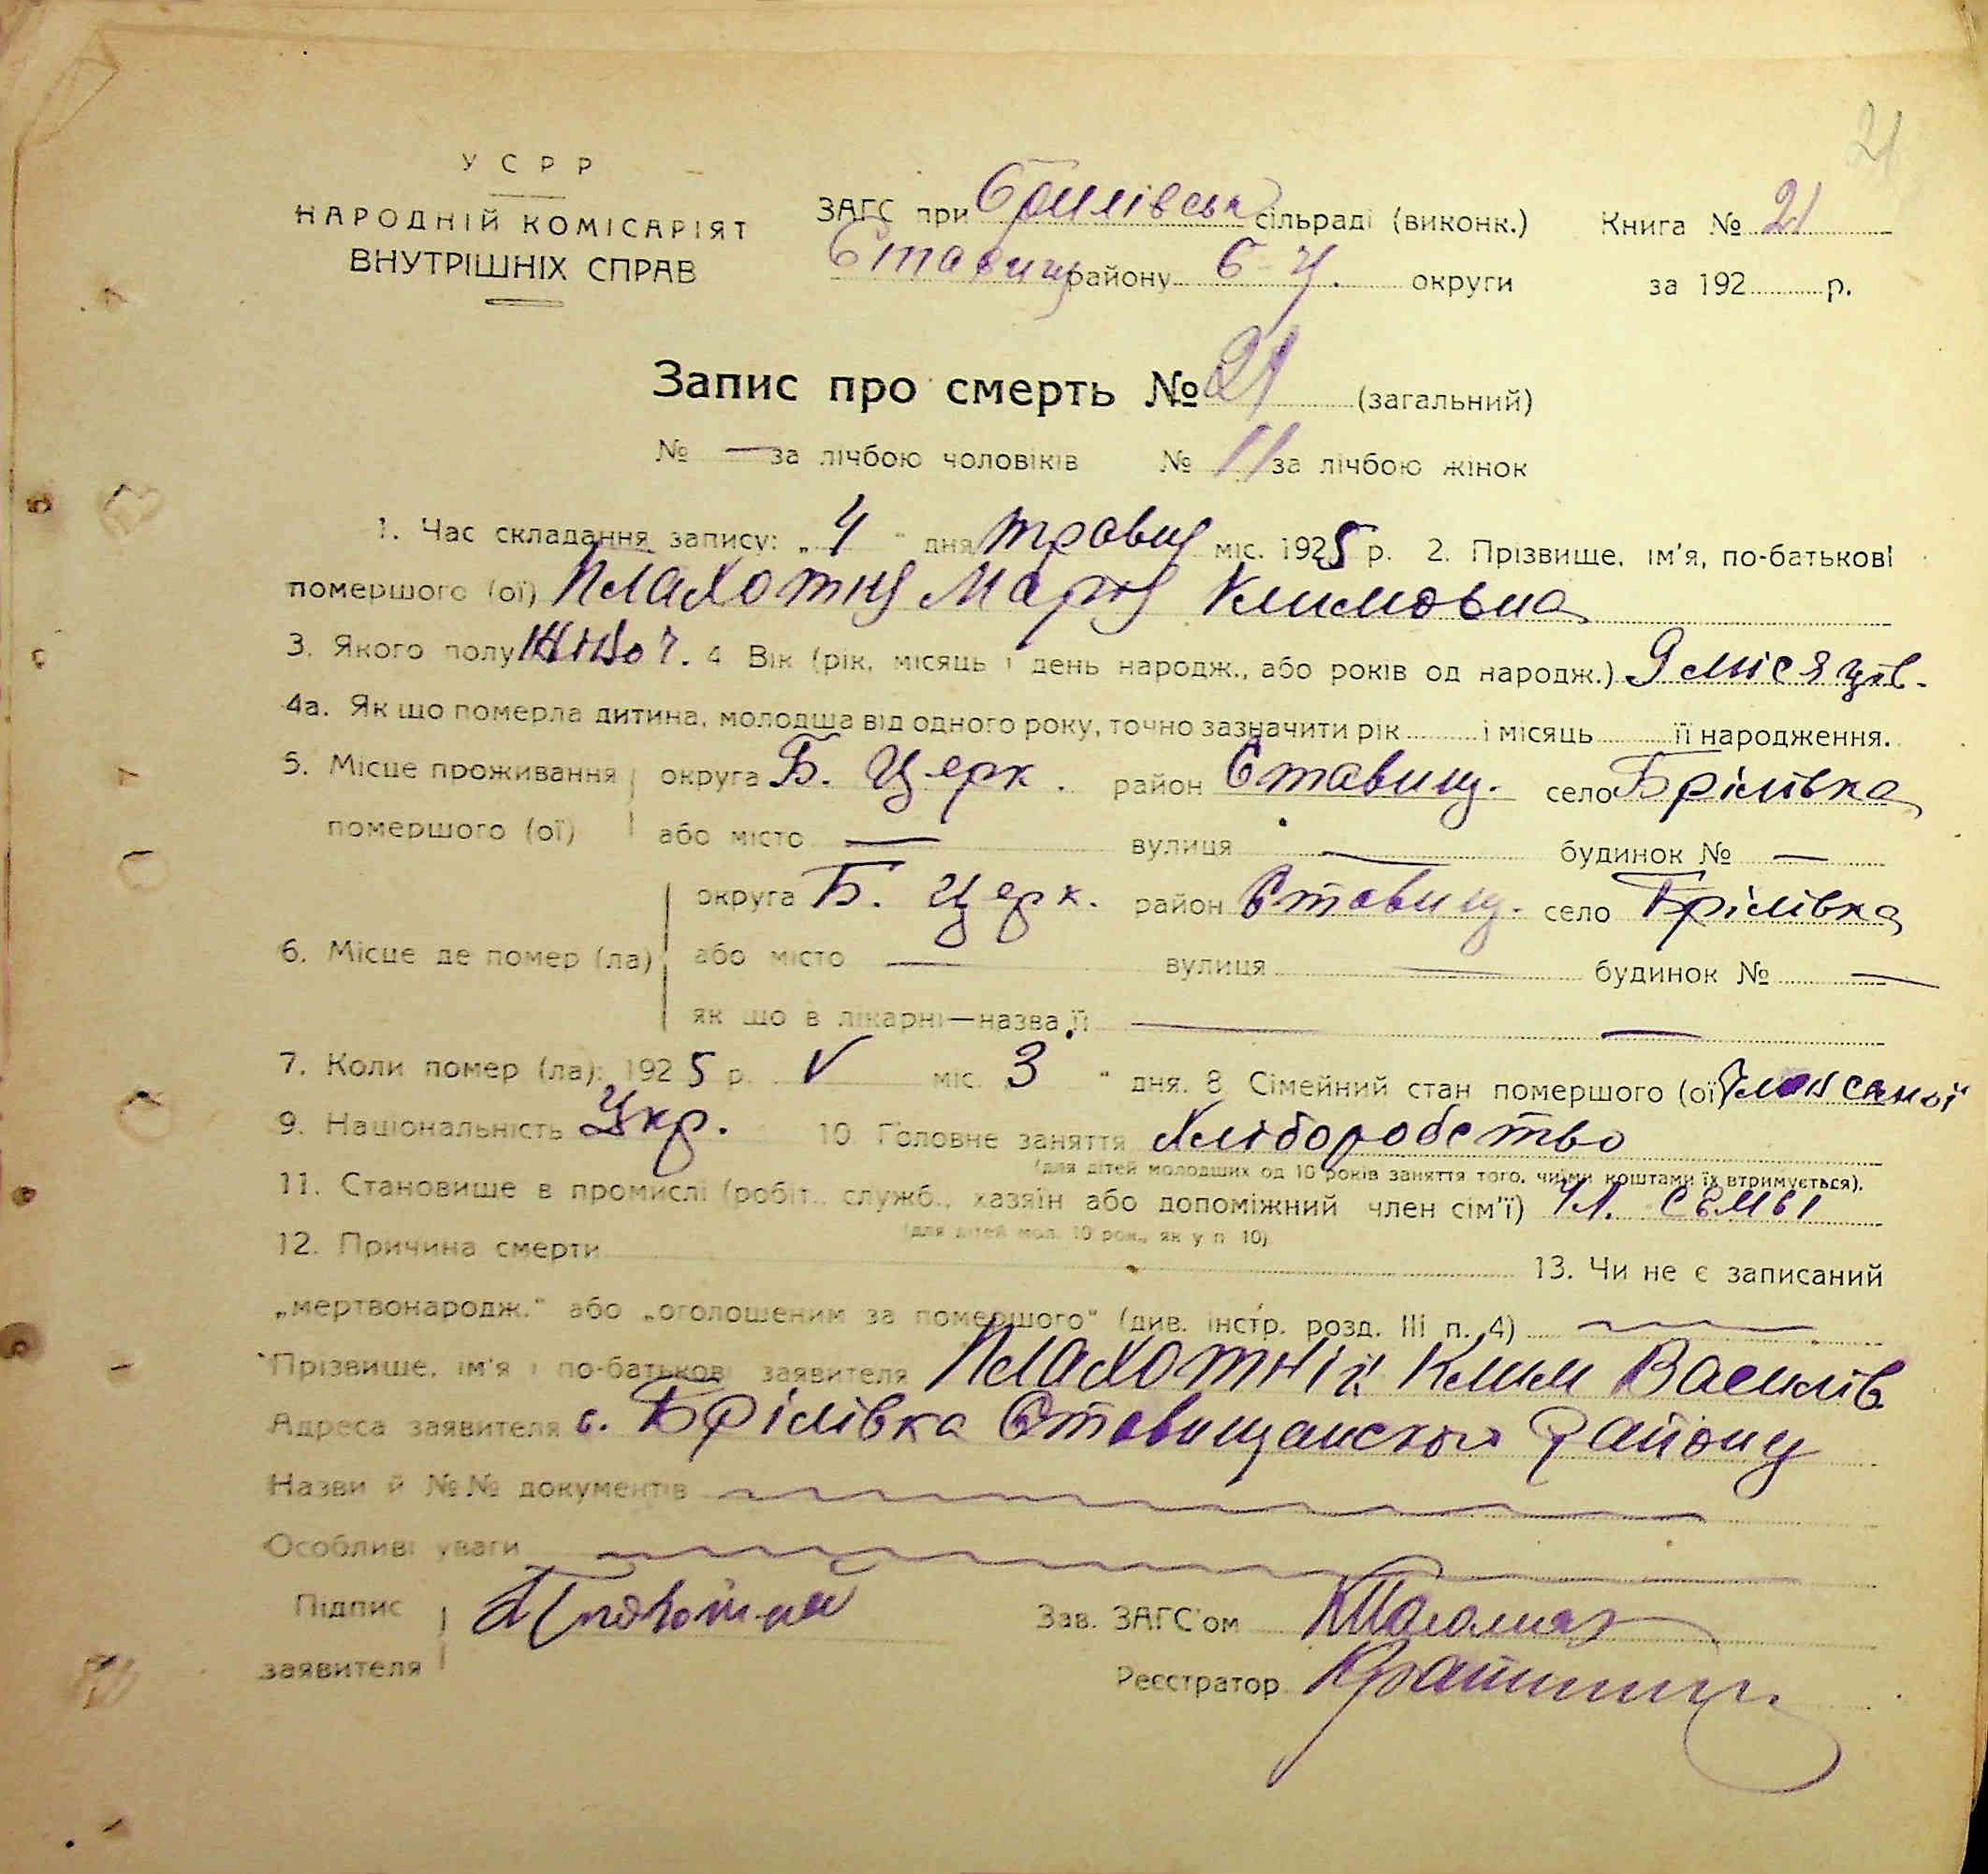 21
У С Р Р
НАРОДНІЙ КОМІСАРІЯТ
ВНУТРІШНІХ СПРАВ
ЗАГС при Брилівськ сільраді (виконк.) Книга № 21
Ставищ району Б-Ц. округи за 192 р.
Запис про смерть № 21 (загальний)
№ — за лічбою чоловіків № 11 за лічбою жінок
1. Час складання запису: „ 4 " дня травня міс. 1925 р. 2. Прізвище, ім'я, по-батькові
помершого (ої) Плахотня Марія Климовна
3. Якого полу жіноч. 4 Вік (рік, місяць і день народж., або років од народж.) 9 місяців.
4а. Як що померла дитина, молодша від одного року, точно зазначити рік і місяць її народження.
5. Місце проживання округа Б. Церк. район Ставищ. село Брілівка
помершого (ої) або місто — вулиця — будинок № —
округа Б. Церк. район Ставищ. село Брілівка
6. Місце де помер (ла) або місто — вулиця — будинок № —
як що в лікарні—назва її — —
7. Коли помер (ла): 1925 р. V міс. 3 " дня. 8 Сімейний стан помершого (ої)
9. Національність Укр. 10. Головне заняття Хліборобство
(для дітей молодших од 10 років заняття того, чиїми коштами їх втримується).
11. Становище в промислі (робіт., служб., хазяїн або допоміжний член сім'ї) Чл. семьі
(для дітей мол. 10 рок., як у п 10)
12. Причина смерти 13. Чи не є записаний
„мертвонародж." або „оголошеним за помершого" (див. інстр. розд. III п. 4)
Прізвище, ім'я і по-батькові заявителя Плахотній Клим Василів
Адреса заявителя с. Брілівка Ставищанського Району
Назви й №№ документів
Особливі уваги
Підпис Зав. ЗАГС'ом
заявителя Реєстратор